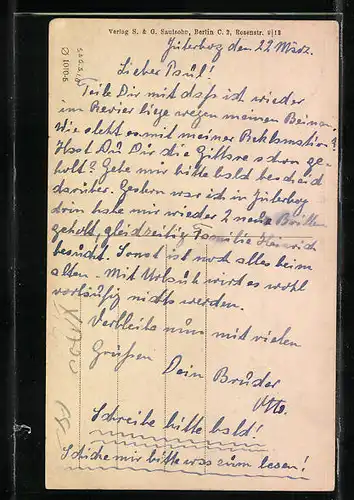 Verlag S. & G. Saulsohn, Berlin C. 2, Rosenstr. 9/13
Jüterbog den 22 März.
Lieber Paul!
Teile Dir mit daß ich wieder
im Revier liege wegen meinen Beinen.
Wie steht es mit meiner Reklamation?
Hast Du Dir die ge-
holt? Gebe mir bitte bald bescheid
darüber. Gestern war ich in Jüterbog
drin habe mir wieder 2 neue
geholt, gleichzeitig Familie Heinrich
besucht. Sonst ist noch alles beim
alten - Mit Urlaub wird es wohl
vorläufig nichts werden.
Verbleibe nun mit vielen
Grüßen
Dein Bruder
Otto.
Schreibe bitte bald!
Schicke mir bitte was zum lesen!